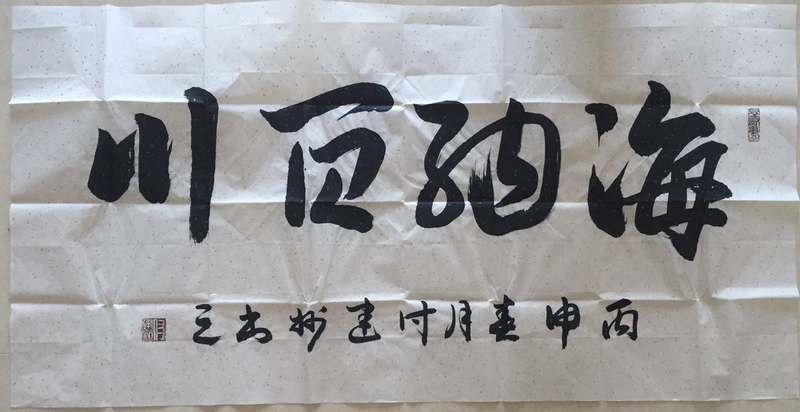 海纳百川
丙申春月付建州书之